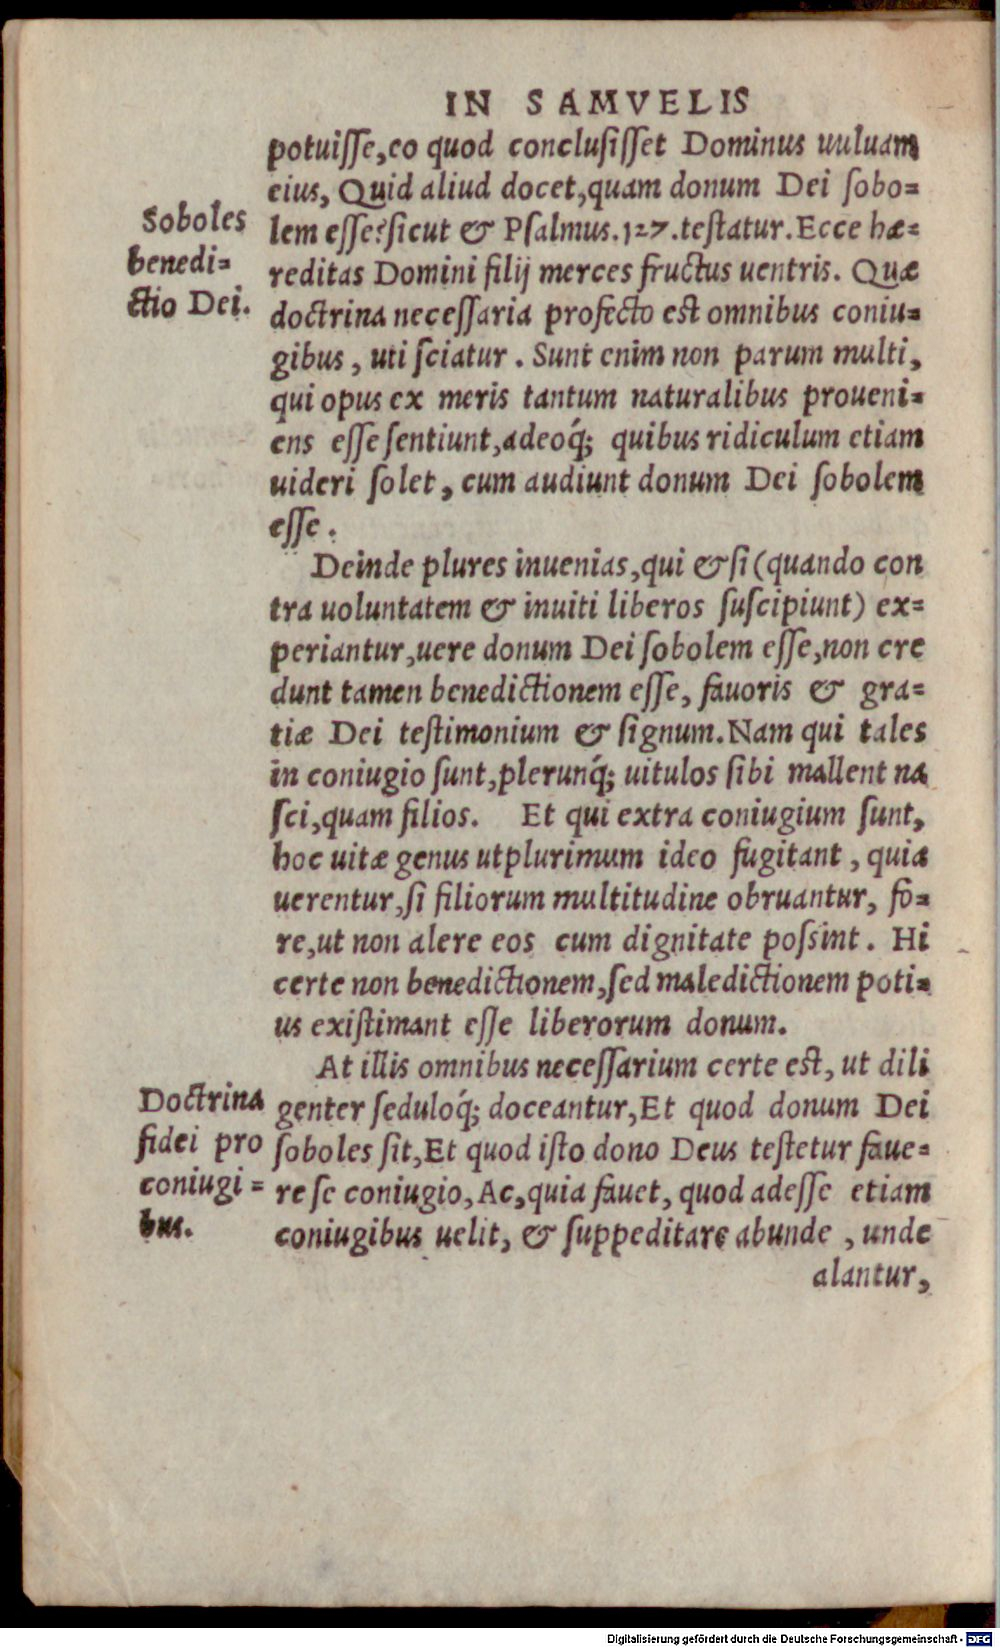 IN SAMVELIS
potuisse,eo quod conclusisset Dominus uuluam
eius, Quid aliud docet,quam donum Dei sobo=
lem esse?sicut & Psalmus.127.testatur.Ecce hæ=
reditas Domini filij merces fructus uentris. Quæ
doctrina necessaria profecto est omnibus coniu=
gibus, uti sciatur. Sunt enim non parum multi,
qui opus ex meris tantum naturalibus proueni=
ens esse sentiunt,adeoq́; quibus ridiculum etiam
uideri solet, cum audiunt donum Dei sobolem
esse.
Soboles
benedi=
ctio Dei.
Deinde plures inuenias,qui & si (quando con
tra uoluntatem & inuiti liberos suscipiunt) ex=
periantur,uere donum Dei sobolem esse,non cre
dunt tamen benedictionem esse, fauoris & gra=
tiæ Dei testimonium & signum.Nam qui tales
in coniugio sunt,plerunq́; uitulos sibi mallent na
sci,quam filios. Et qui extra coniugium sunt,
hoc uitæ genus utplurimum ideo fugitant, quia
uerentur,si filiorum multitudine obruantur, fo=
re,ut non alere eos cum dignitate possint. Hi
certe non benedictionem,sed maledictionem poti=
us existimant esse liberorum donum.
At illis omnibus necessarium certe est, ut dili
genter seduloq́; doceantur,Et quod donum Dei
soboles sit,Et quod isto dono Deus testetur faue=
re se coniugio, Ac,quia fauet, quod adesse etiam
coniugibus uelit, & suppeditare abunde, unde
Doctrina
fidei pro
coniugi=
bus.
alantur,
Digitalisierung gefördert durch die Deutsche Forschungsgemeinschaft - DFG